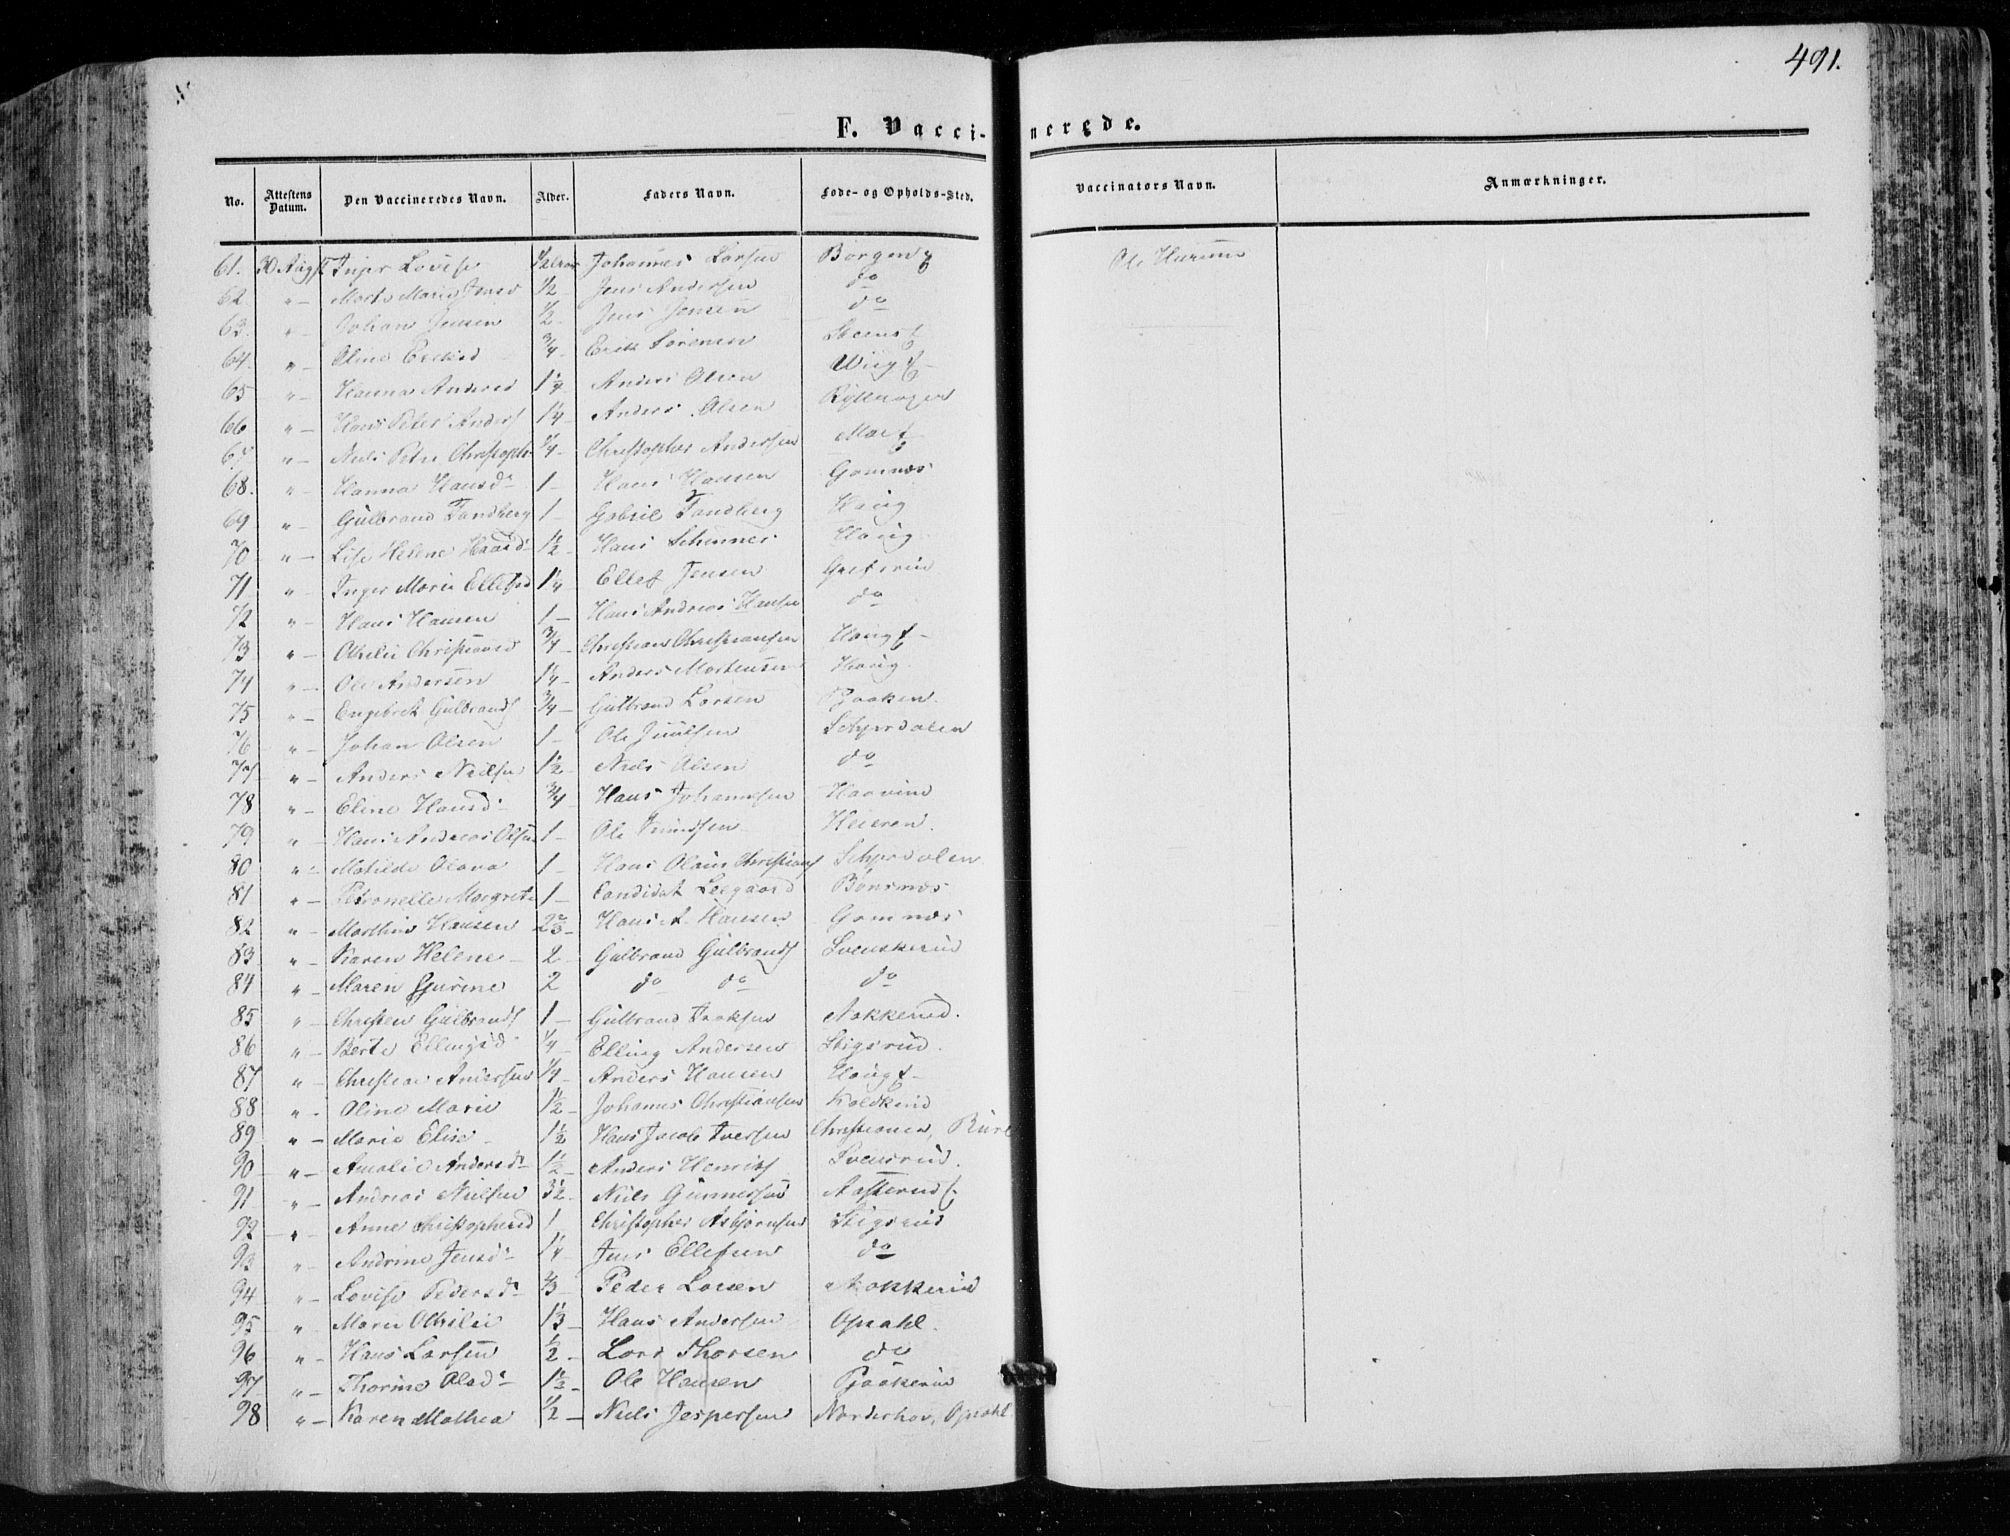 491.
F. Vacci- nerede.
No. Attestens Datum. Den Vaccineredes Navn. Alder. Faders Navn. Føde- og Opholds-Sted. Vaccinators Navn. Anmærkninger.
61. 30 Augst Inger Lovise 1/2 Johannes Larsen Borgen Ole Hurum
62 " Marte Marie Jensd 1/2 Jens Andersen do
63. " Johan Jensen 1/2 Jens Jensen do
64. " Oline Eriksd 3/4 Erik Sørensen
65 " Hanna Andersd 1 1/4 Anders Olsen Wiig
66 " Hans Peter Anders 1/4 Anders Olsen
67 " Niels Peter Christoph 1/4 Christopher Andersen Moe
68. " Hanna Hansd 1 Hans Hansen Gomnæs
69 " Gulbrand Tandberg 1 Gabriel Tandberg Houg
70 " Lise Helene Hansd 1 1/2 Hans Houg
71 " Inger Marie Ellefsd 1 1/4 Ellef Jensen
72 " Hans Hansen 1 Hans Andreas Hansen do
73 " Othilie Christiansd 3/4 Christian Christiansen Houg
74 " Ole Andersen 1 1/4 Anders Mortensen Houg
75 " Engebret Gulbrands 3/4 Gulbrand Larsen Braaken
76 " Johan Olsen 1 Ole Juulsen Schjørdalen
77 " Anders Nielsen 1 1/2 Niels Olsen do
78 " Eline Hansd 3/4 Hans Johannesen Haavind
79 " Hans Andreas Olsen 1 Ole Heieren.
80 " Mathilde Olava 1 Hans Olaus Christians Schjørdalen
81 " Petronelle Margrete 1 Candidat Leegaard Bønsnæs
82 " Marthin Hansen 2 2/3 Hans A. Hansen Gomnæs
83 " Karen Helene 2 Gulbrand Gulbrands Svenskerud
84 " Maren Gurine 2 do do do
85 " Christen Gulbrands 1 Gulbrand Isaksen Nakkerud.
86 " Berte Ellingsd 1/4 Elling Andersen Stigsrud.
87 " Christian Andersen 1/4 Anders Hansen Houg
88 " Oline Marie 1 1/2 Johannes Christiansen Koldkind
89 " Marie Elise 1 1/2 Hans Jacob Iversen Christiania,
90 " Amalie Andersd 1 1/2 Anders Henriks Svensrud.
91 " Andreas Nielsen 3 1/2 Niels Gunnersen Aasterud
92 " Anne Christophersd 1 Christopher Asbjørnsen Stigsrud
93 " Andrine Jensd 1 1/4 Jens Ellefsen do
94 " Lovise Pedersd 2/3 Peder Larsen Nakkerud
95 " Maren Othilie 1 1/3 Hans Andersen Opsahl.
96 " Hans Larsen 1/2 Lars Thorsen do
97 " Thorine Olsd 1 1/2 Ole Hansen Braakerud
98 " Karen Mathea 1/2 Niels Jespersen Norderhov, Opsahl.